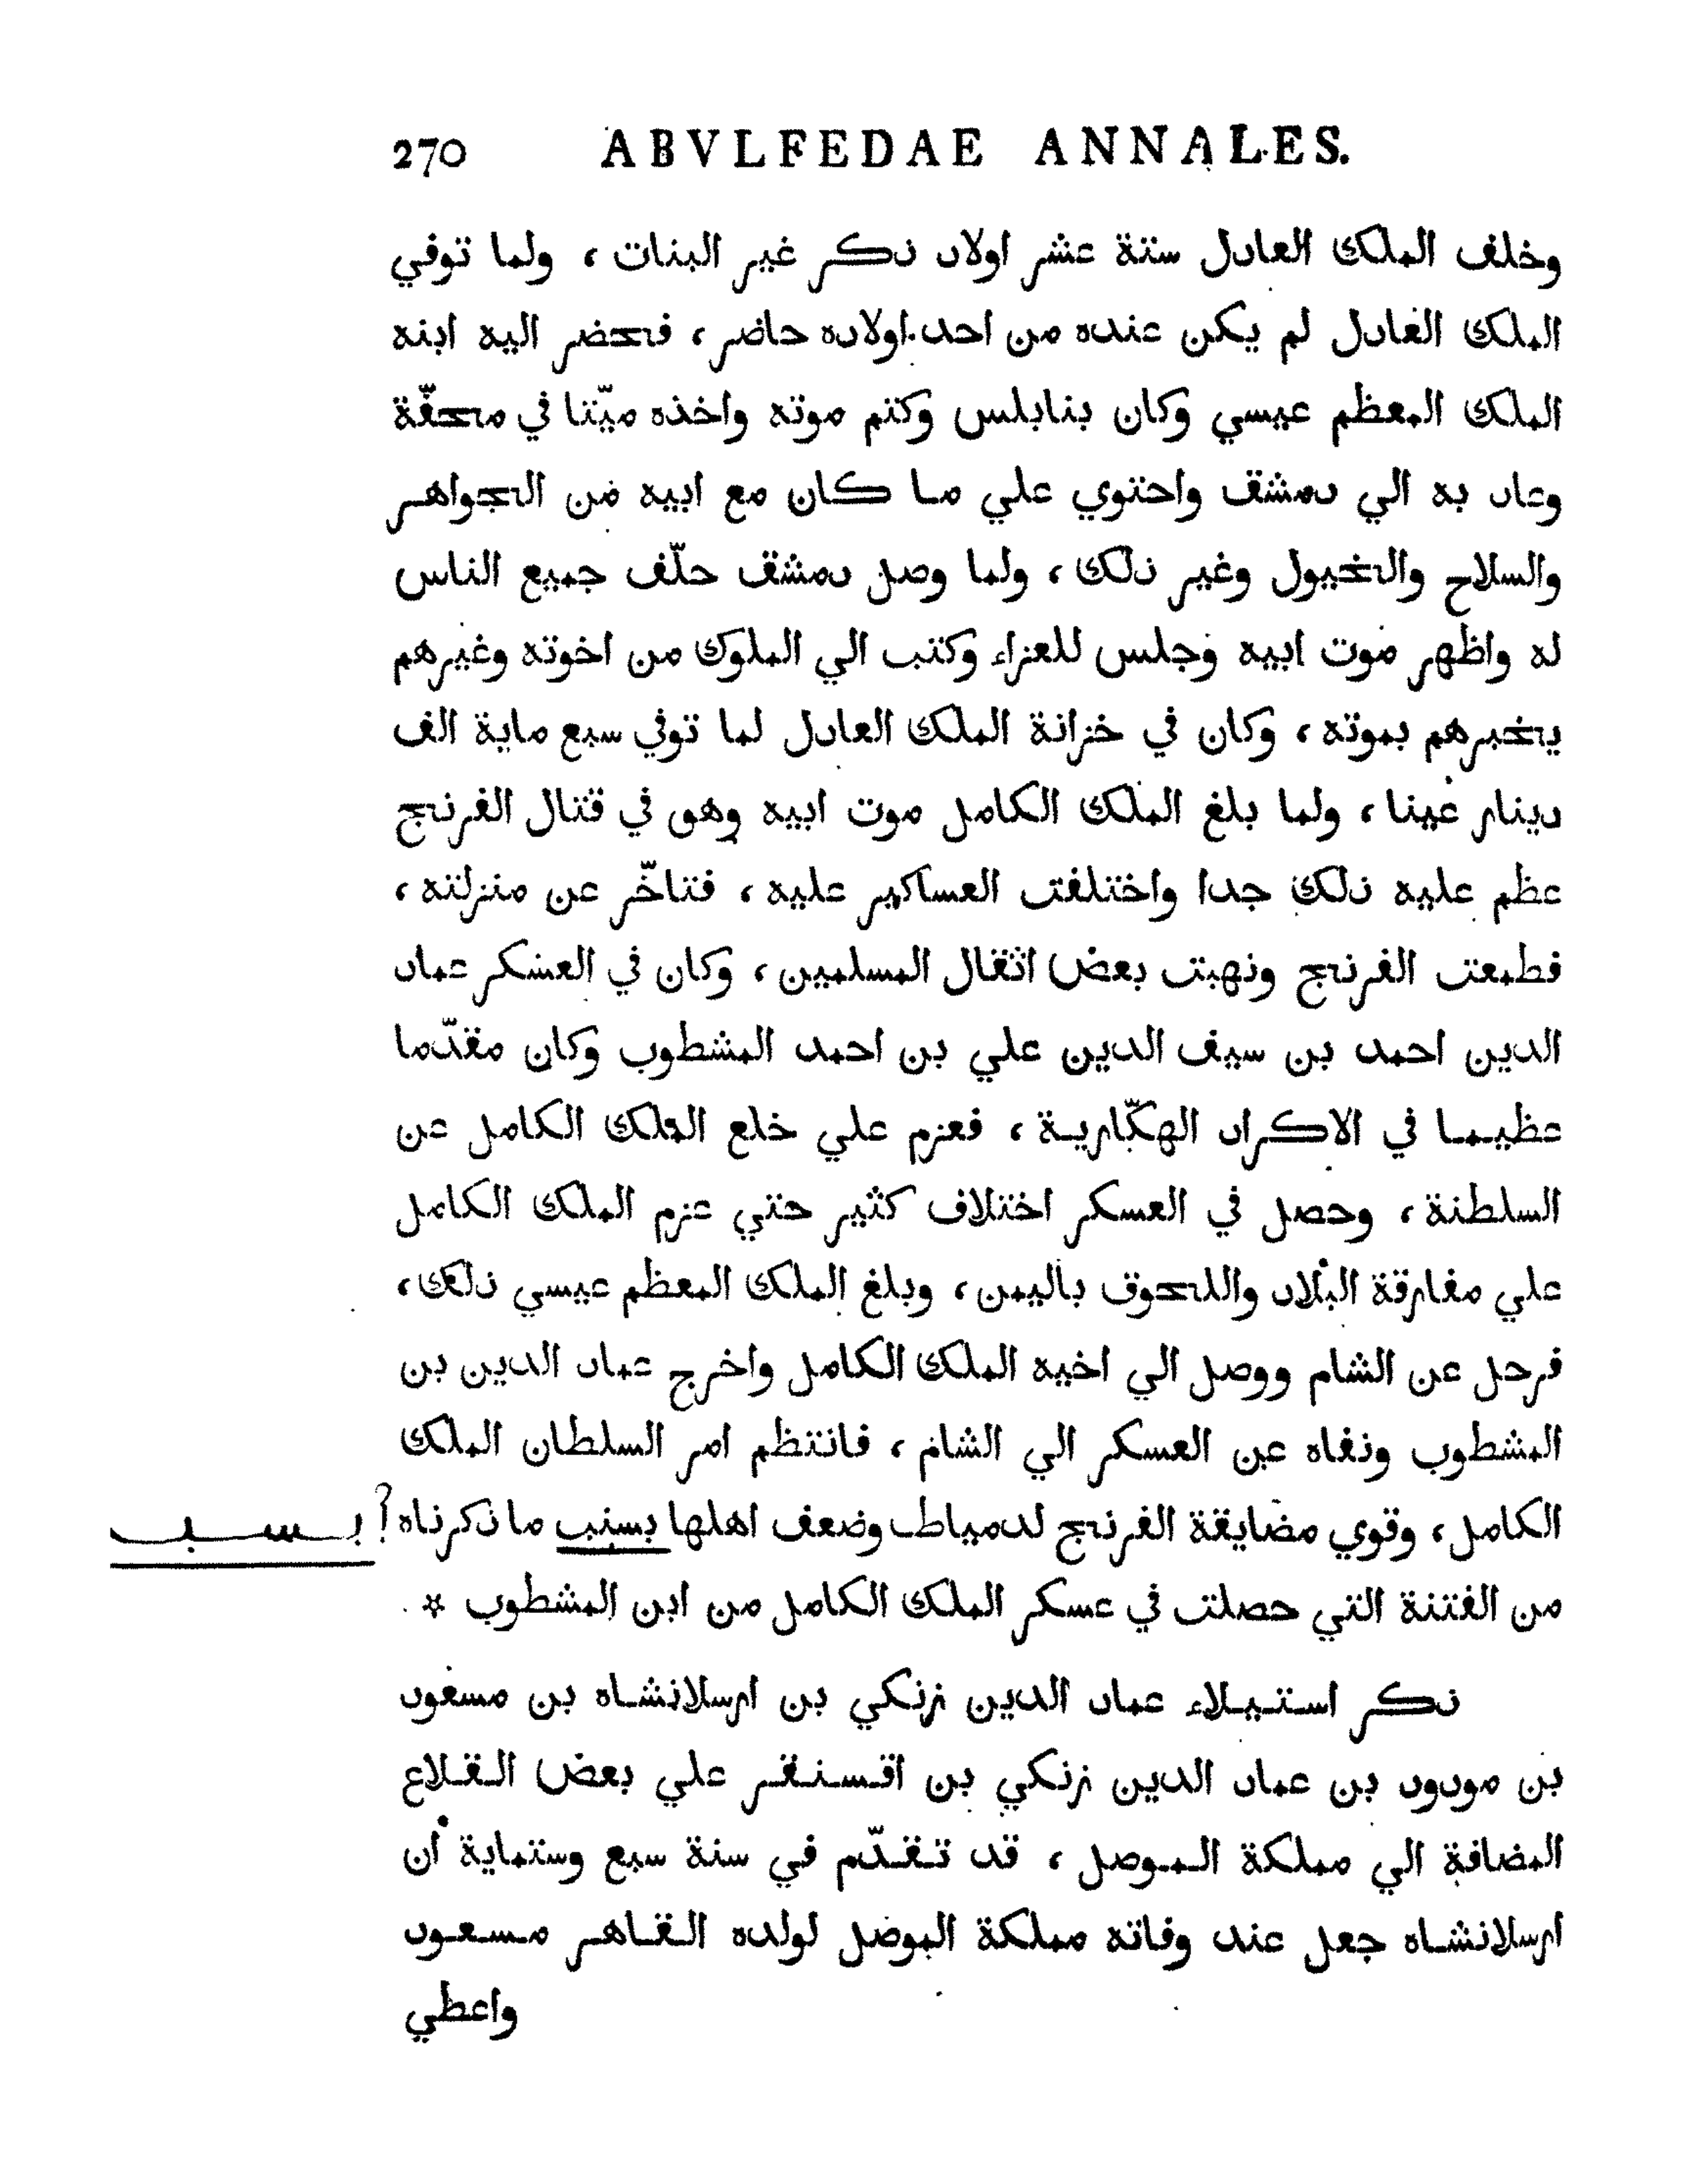 270 ABVLFEDAE ANNALES.
وخلف الملك العادل ستة عشر اولاد ذكر غير البنات ، ولما توفي
الملك العادل لم يكن عنده من احد اولاده حاضر ، فحضر اليه ابنه
الملك المعظم عيسي وكان بنابلس وكتم موته واخذه ميّتا في محفّة
وعاد به الي دمشق واحتوي علي ما كان مع ابيه من الجواهر
والسلاح والخيول وغير ذلك ، ولما وصل دمشق حلّف جميع الناس
له واظهر موت ابيه وجلس للعزاء وكتب الي الملوك من اخوته وغيرهم
يخبرهم بموته ، وكان في خزانة الملك العادل لما توفي سبع ماية الف
دينار عينا ، ولما بلغ الملك الكامل موت ابيه وهو في قتال الفرنج
عظم عليه ذلك جدا واختلفت العساكير عليه ، فتاخّر عن منزلته ،
فطمعت الفرنج ونهبت بعض اثقال المسلمين ، وكان في العسكر عماد
الدين احمد بن سيف الدين علي بن احمد المشطوب وكان مقدّما
عظيما في الاكراد الهكّارية ، فعزم علي خلع الملك الكامل عن
السلطنة ، وحصل في العسكر اختلاف كثير حتي عزم الملك الكامل
علي مفارقة البلاد واللحوق باليمن ، وبلغ الملك المعظم عيسي ذلك ،
فرحل عن الشام ووصل الي اخيه الملك الكامل واخرج عماد الدين بن
المشطوب ونفاه عن العسكر الي الشام ، فانتظم امر السلطان الملك
الكامل ، وقوي مضايقة الفرنج لدمياط وضعف اهلها بسنب ما ذكرناه ? بسبب
من الفتنة التي حصلت في عسكر الملك الكامل من ابن المشطوب *
ذكر استيلاء عماد الدين زنكي بن ارسلانشاه بن مسعود
بن مودود بن عماد الدين زنكي بن اقسنقر علي بعض القلاع
المضافة الي مملكة الموصل ، قد تقدّم في سنة سبع وستماية أن
ارسلانشاه جعل عند وفاته مملكة الموصل لولده القاهر مسعود
واعطي